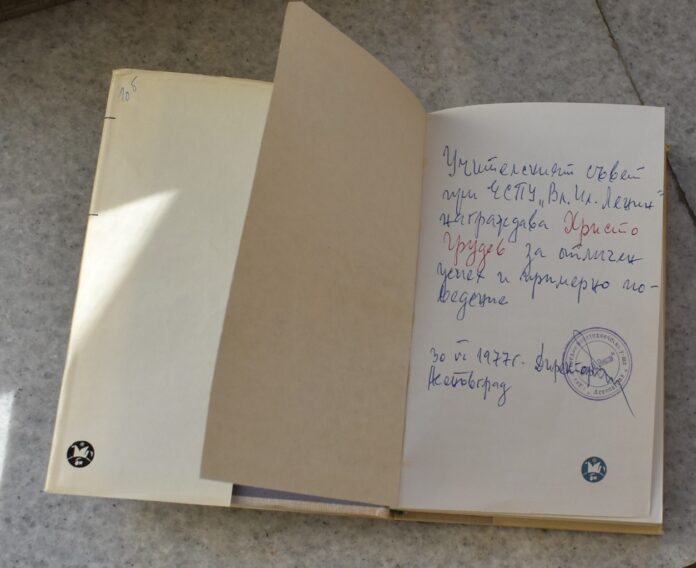 10⁵
Учителският съвет
при ЕСПУ „Вл. Ил. Ленин"
награждава Христо
Грудев за отличен
успех и примерно по-
ведение
30 VI 1977 г. Директор:
Асеновград